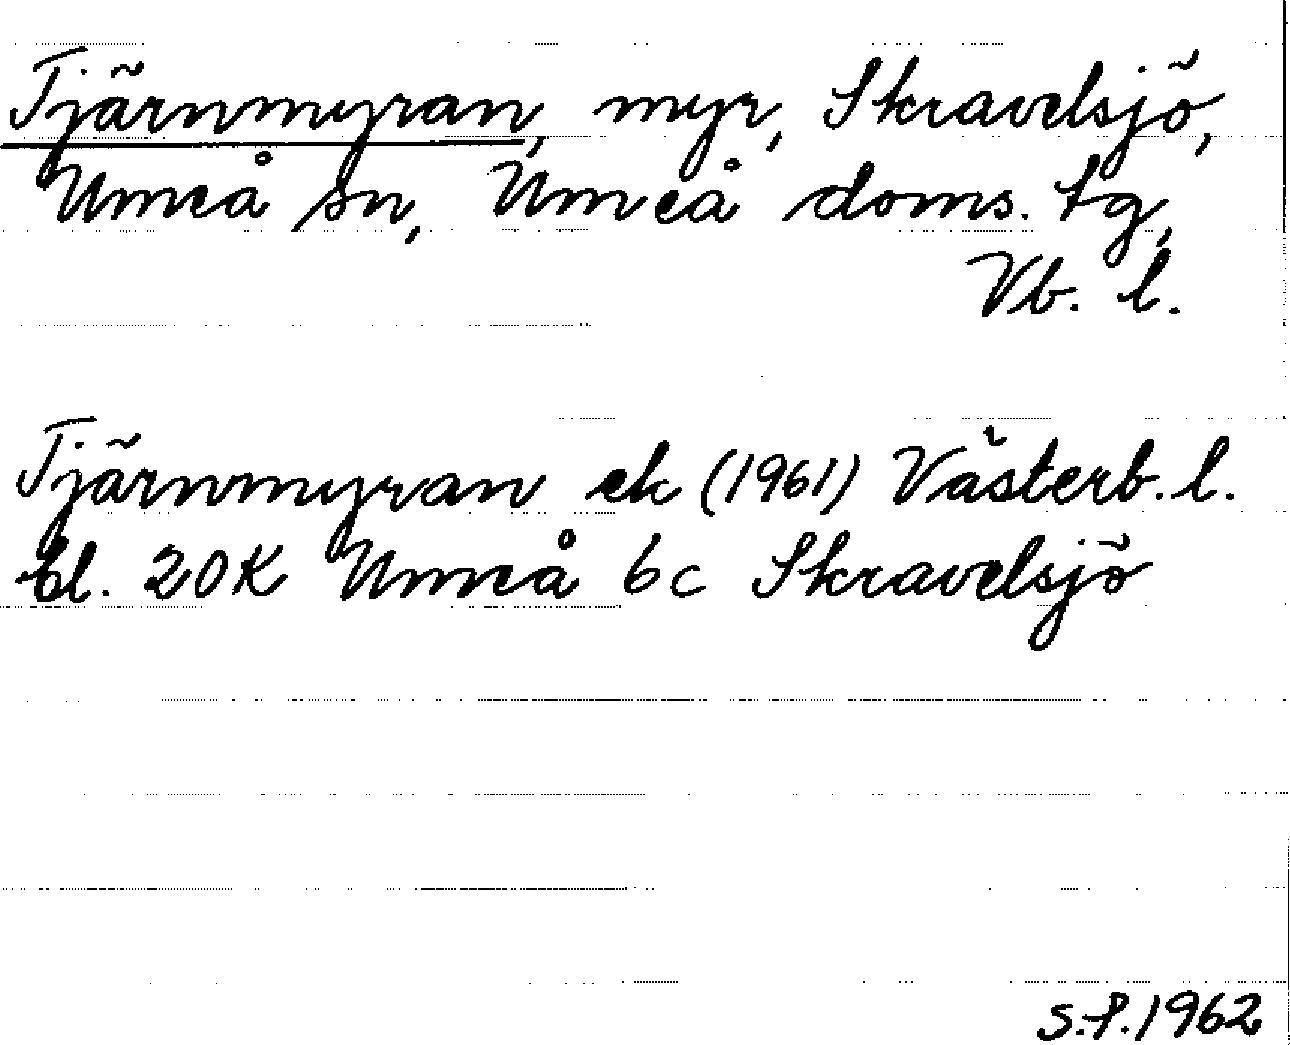 Tjärnmyran, myr, Skravelsjö,
Umeå sn, Umeå doms. tg,
Vb. l.
Tjärnmyran ek (1961) Västerb. l.
bl. 20K Umeå 6c Skravelsjö
S.f. 1962